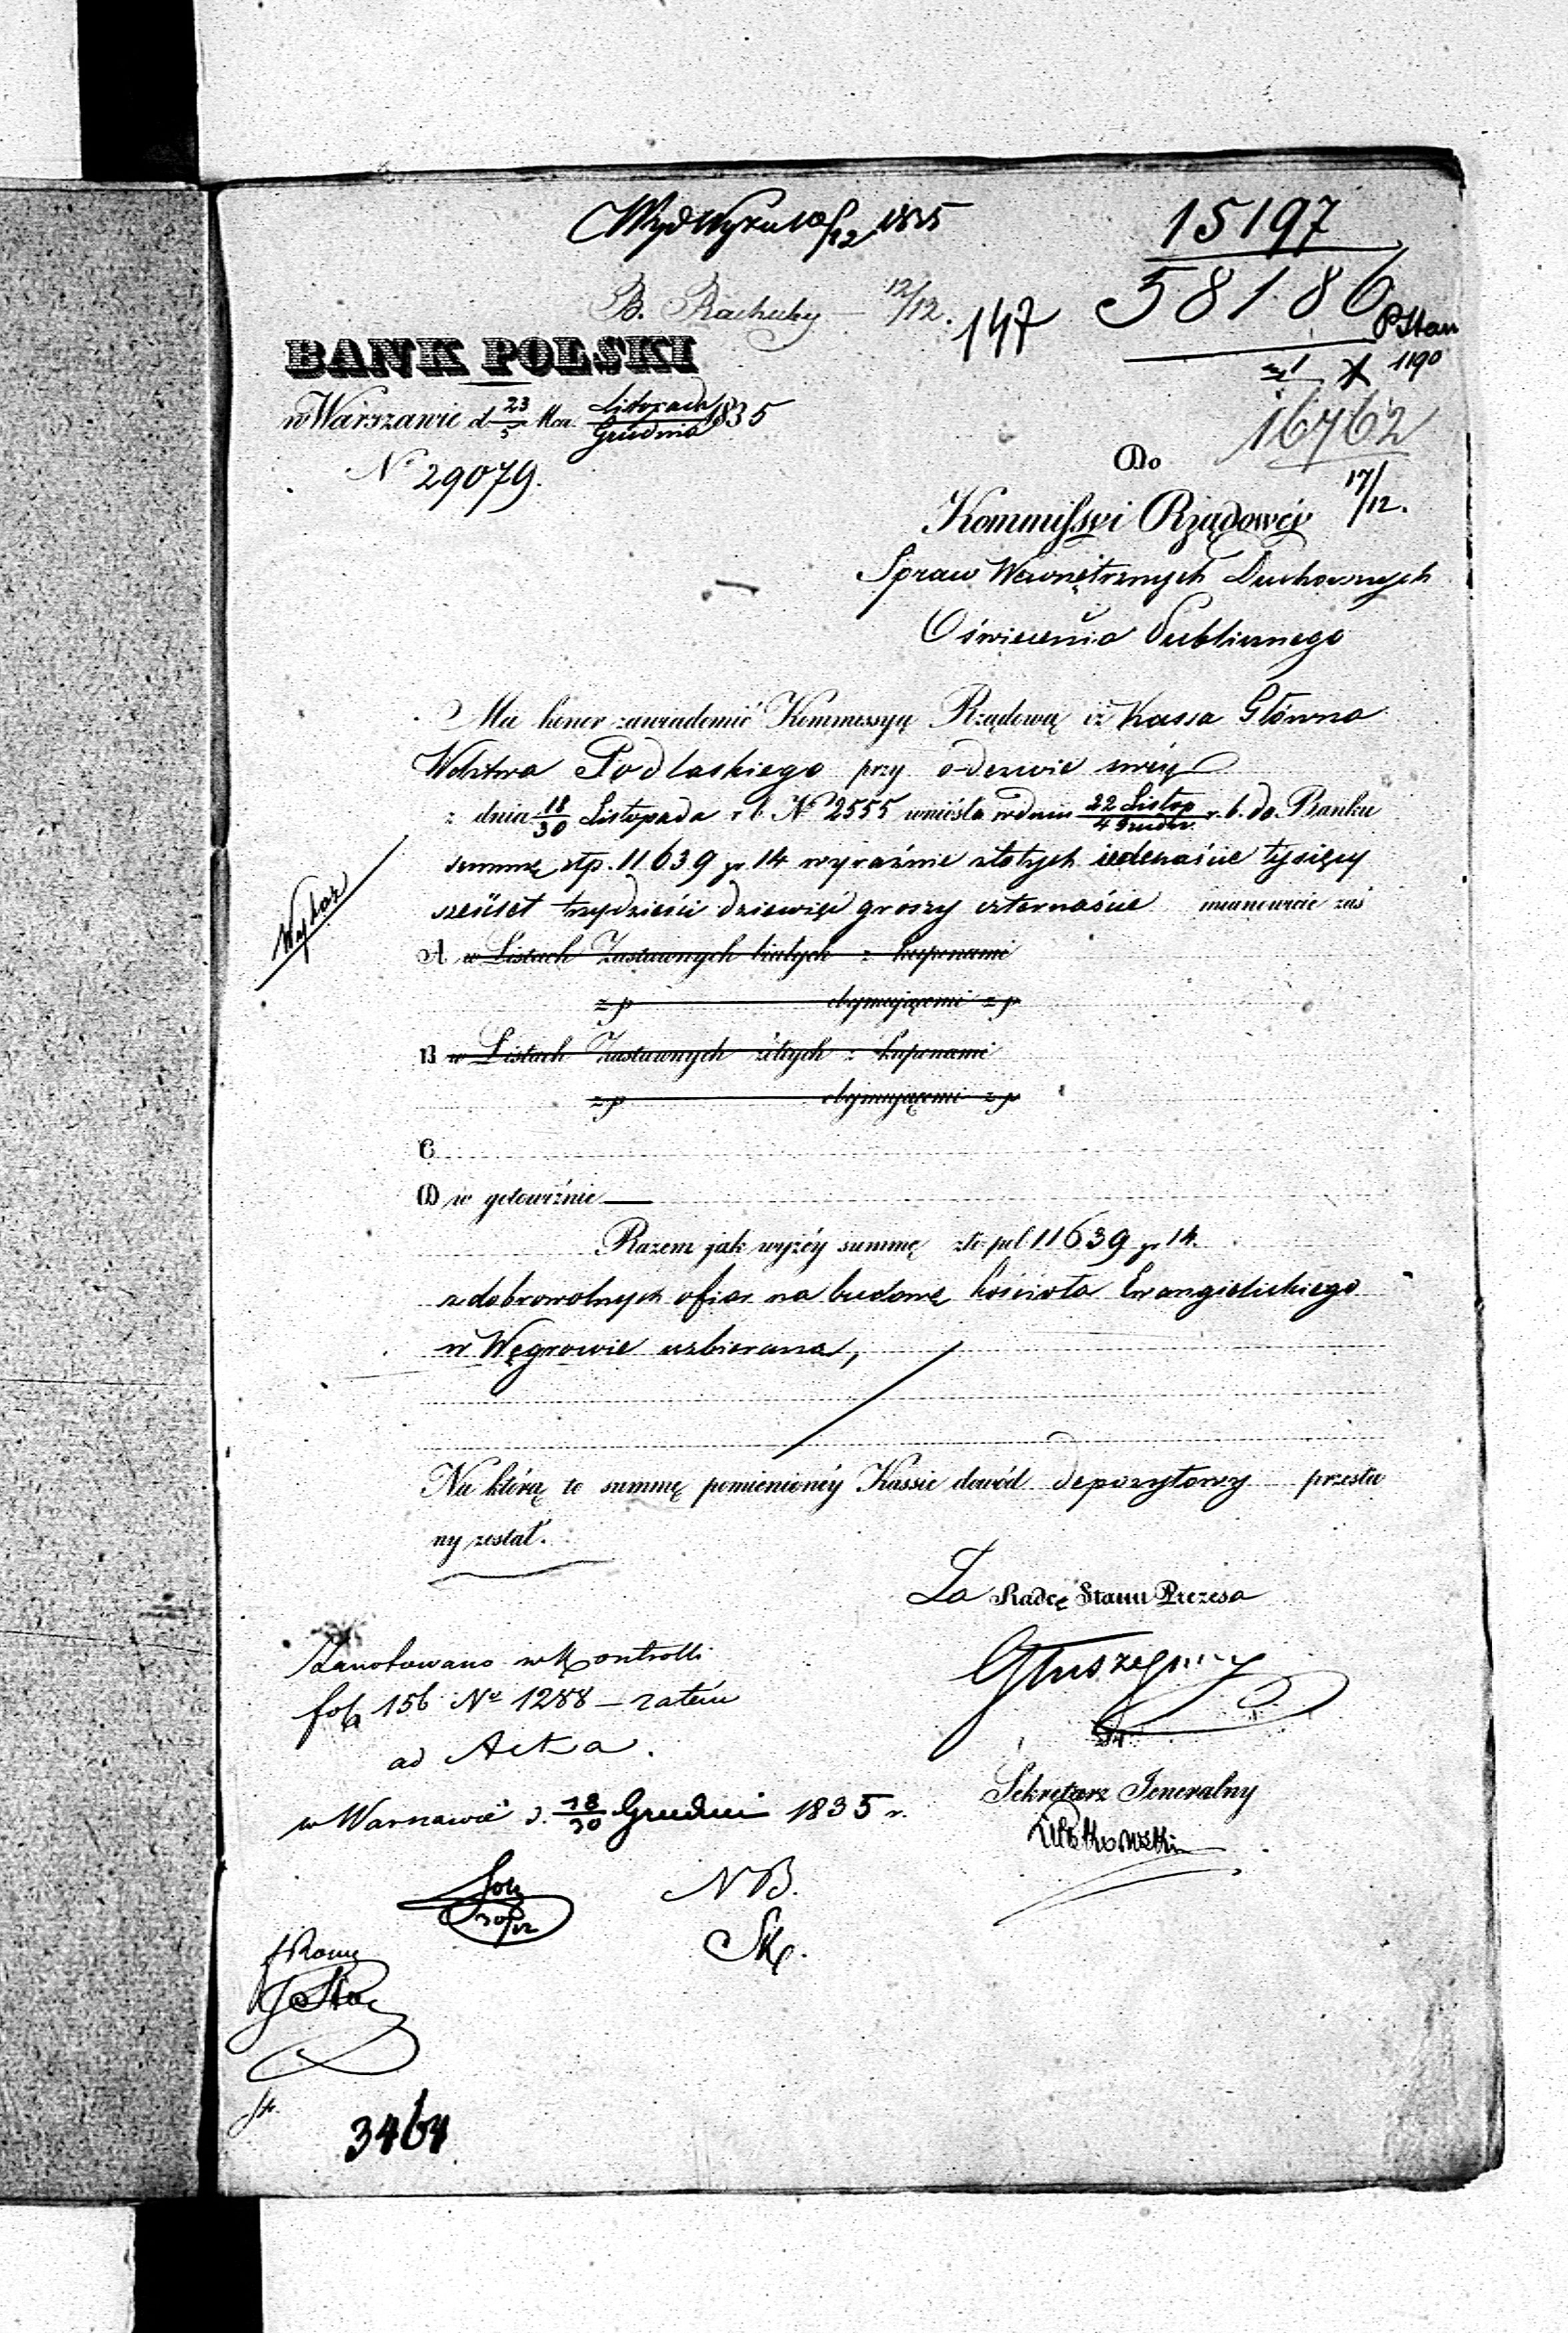 1835
15197
B. Rachuby — 12/12. 147
58186
1190
BANK POLSKI
w Warszawie d 23/5 Mca. Listopada/Grudnia 1835
16762
N° 29079.
Do
17/12.
Kommissyi Rządowéy
Spraw Wewnętrznych Duchownych
i
Oświecenia Publicznego
Ma honor zawiadomić Kommissyą Rządową iż Kassa Główna
Wdztwa Podlaskiego przy odezwie swéy
z dnia 18/30 Listopada r. b. N° 2555 wniosła w dniu 22 Listop/4 Grudn r. b. do Banku
summę złp. 11639 gr 14 wyraźnie złotych iedenaście tysięcy
sześćset trzydzieści dziewięć groszy czternaście mianowicie zaś
A w Listach Zastawnych białych z kuponami
z p obejmującemi z p
B w Listach Zastawnych żółtych z kuponami
z p obejmującemi z p
C
D w gotowiźnie —
Razem jak wyżéy summę zło. pol 11639 gr 14.
z dobrowolnych ofiar na budowę kościoła Ewangielickiego
w Węgrowie uzbierana,
Na którą to summę pomienionéy Kassie dowód depozytowy przesła
ny został.
Za Radcę Stanu Prezesa
Zanotowano w Kontrolli
fol 156 N° 1288 — zatém
ad Acta.
Sekretarz Jeneralny
w Warszawie d. 18/30 Grudni 1835 r.
NB.
30/12
3464